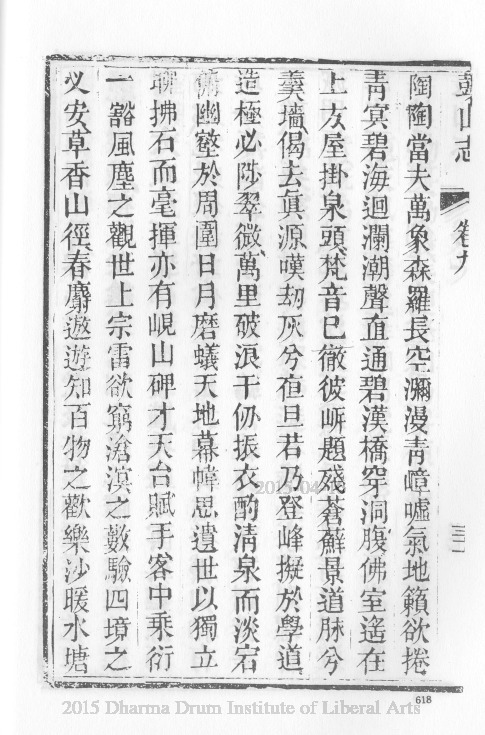 鼓山志
卷九
三二
陶陶當夫萬象森羅長空瀰漫青嶂噓氣地籟欲捲
青冥碧海迴瀾潮聲直通碧漢橋穿洞腹佛室遙在
上友屋掛泉頭梵音已徹彼岍題殘蒼蘚景道脉兮
羹墻偈去眞源嘆劫灰兮亱旦若乃登峰擬於學道
造極必陟翠微萬里破浪千仞振衣酌清泉而淡宕
俯幽壑於周圍日月磨蟻天地幕幃思遺世以獨立
聊拂石而毫揮亦有峴山碑才天台賦手客中乘衍
一豁風塵之觀世上宗雷欲窮滄溟之藪驗四境之
乂安草香山徑春麝遨遊知百物之歡樂沙暖水塘
2015.04
618
2015 Dharma Drum Institute of Liberal Arts